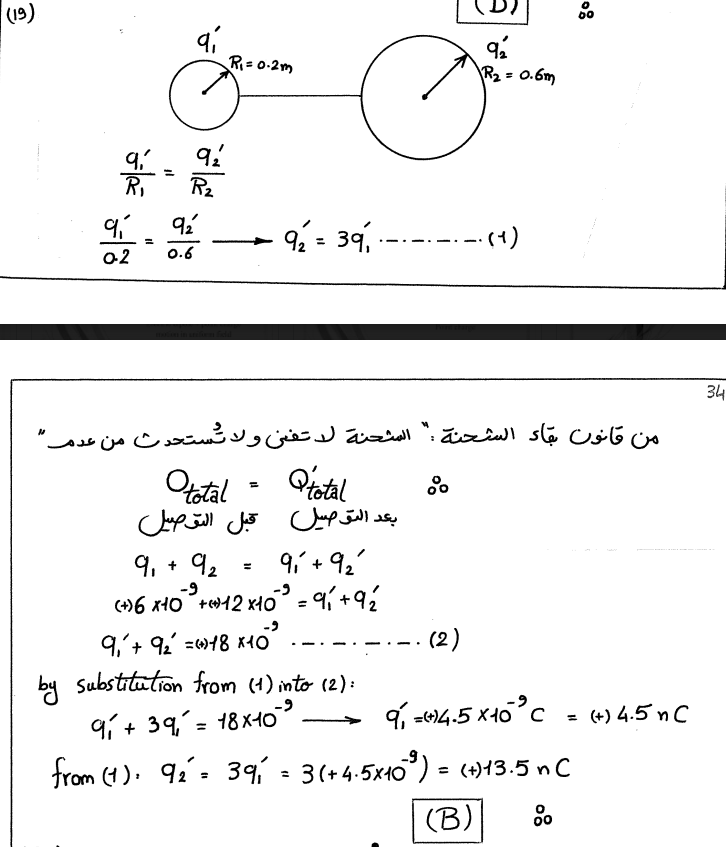 (D) ∴
(19)
q₁′ q₂′
R₁ = 0.2m R₂ = 0.6m
q₁′/R₁ = q₂′/R₂
q₁′/0.2 = q₂′/0.6 → q₂′ = 3q₁′ -·-·-·-·- (1)
34
من قانون بقاء الشحنة : "الشحنة لا تفنى ولا تُستحدث من عدم"
Qtotal = Q′total ∴
قبل التوصيل بعد التوصيل
q₁ + q₂ = q₁′ + q₂′
(+)6 ×10⁻⁹ + (+)12 ×10⁻⁹ = q₁′ + q₂′
q₁′ + q₂′ = (+)18 ×10⁻⁹ -·-·-·-·- (2)
by substitution from (1) into (2) :
q₁′ + 3q₁′ = 18×10⁻⁹ → q₁′ = (+)4.5 ×10⁻⁹ C = (+) 4.5 nC
from (1) : q₂′ = 3q₁′ = 3(+4.5×10⁻⁹) = (+)13.5 nC
(B) ∴